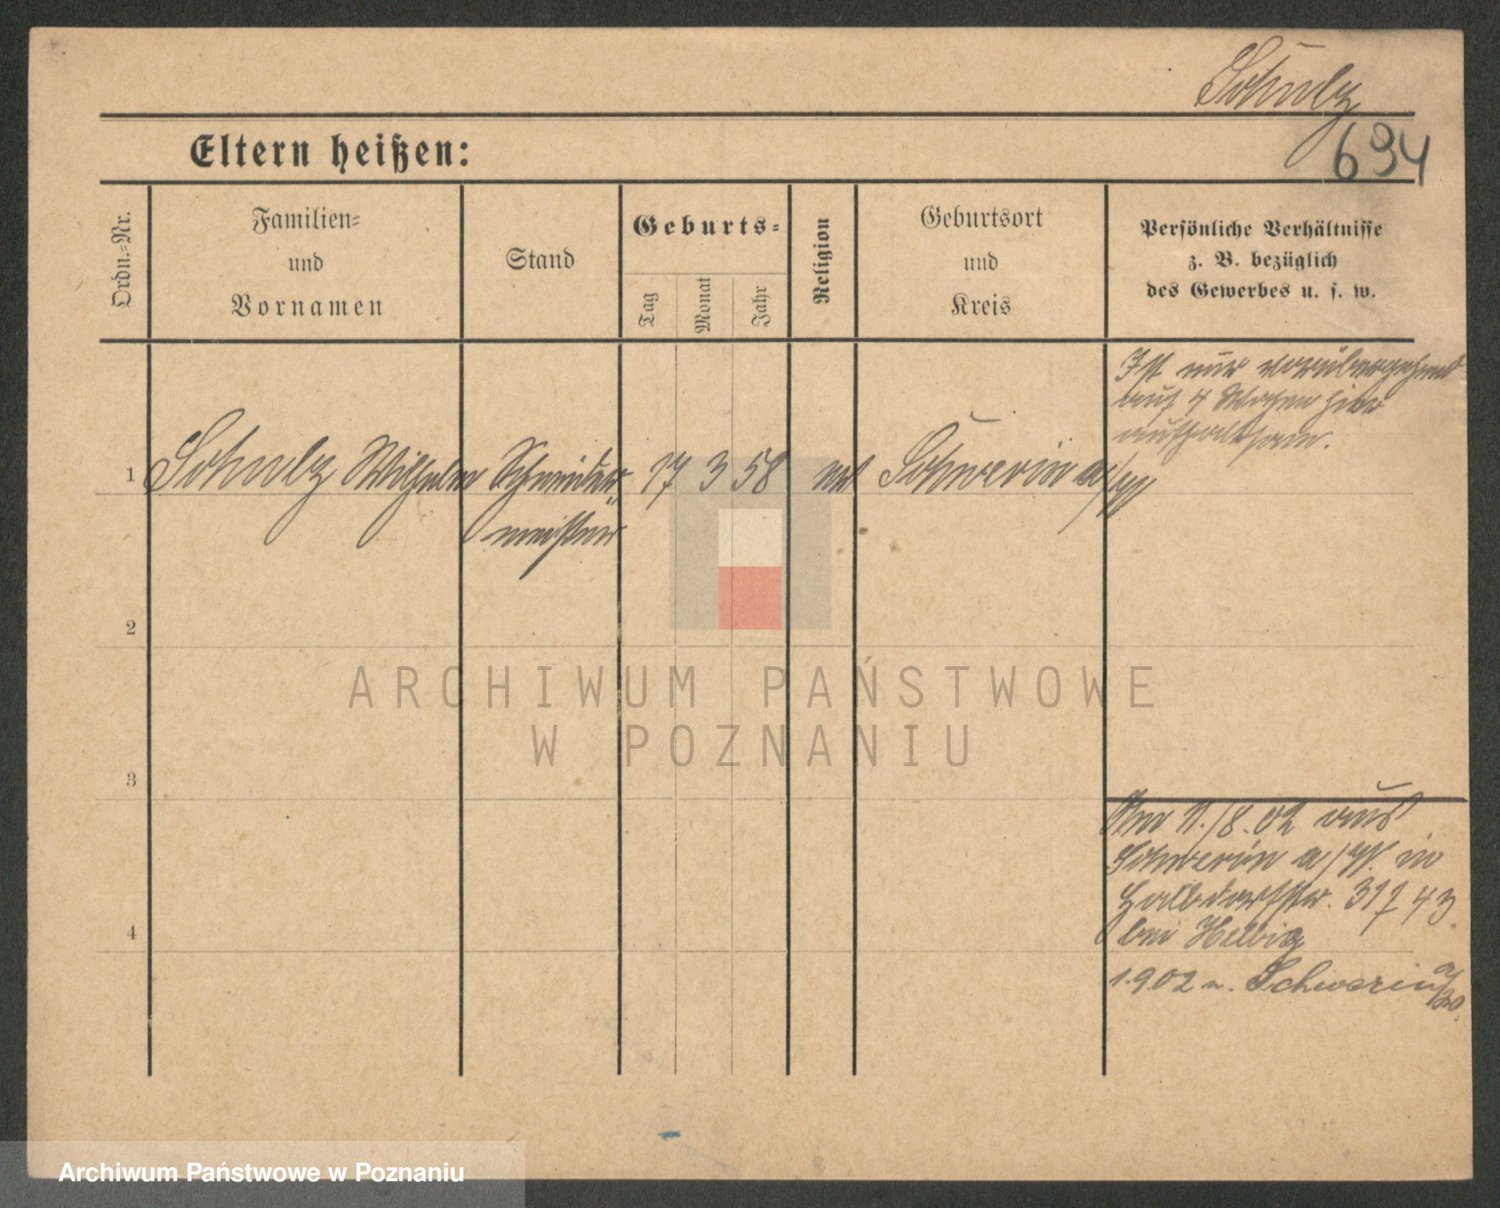 Schulz
694
Eltern heißen:
Ordn.-Nr.
Familien-
und
Vornamen
Stand
Geburts-
Tag
Monat
Jahr
Religion
Geburtsort
und
Kreis
Persönliche Verhältnisse
z. B. bezüglich
des Gewerbes u. s. w.
Ist nur vorübergehend
auf 4 Wochen hier
aufhaltsam.
1 Schulz Wilhelm Schneider- 17 3 58 Schwerin a/W
meister
2
3
4
11./8.02 aus
Schwerin a/W. in
Halbdorfstr. 31
bei Helbig
1.9.02 n. Schwerin a/W.
ARCHIWUM PAŃSTWOWE
W POZNANIU
Archiwum Państwowe w Poznaniu